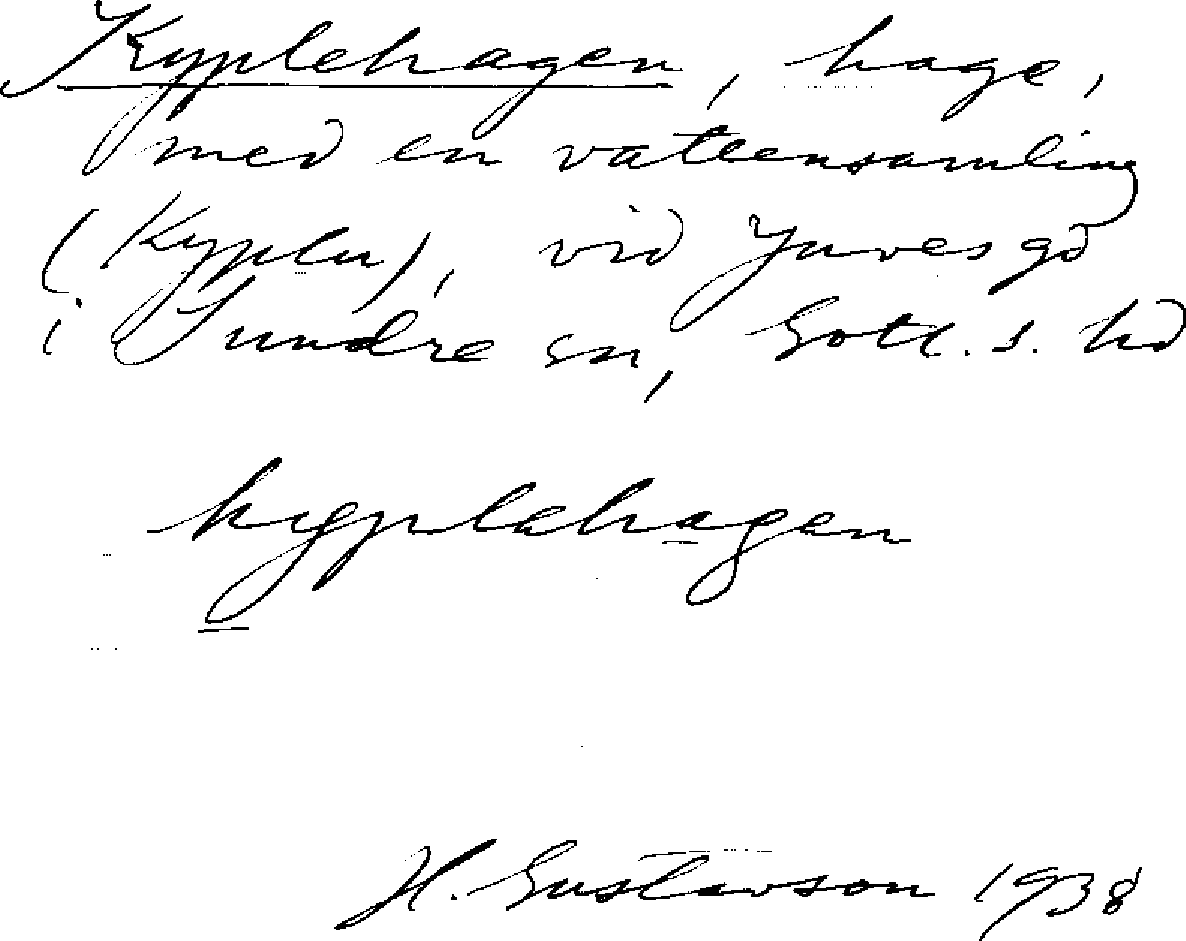 Kyplehagen, hage,
med en vattensamling
(Kyplu), vid Juves gd
i Sundre sn, Gotl. s. hd
kyplehagen
H. Gustavson 1938